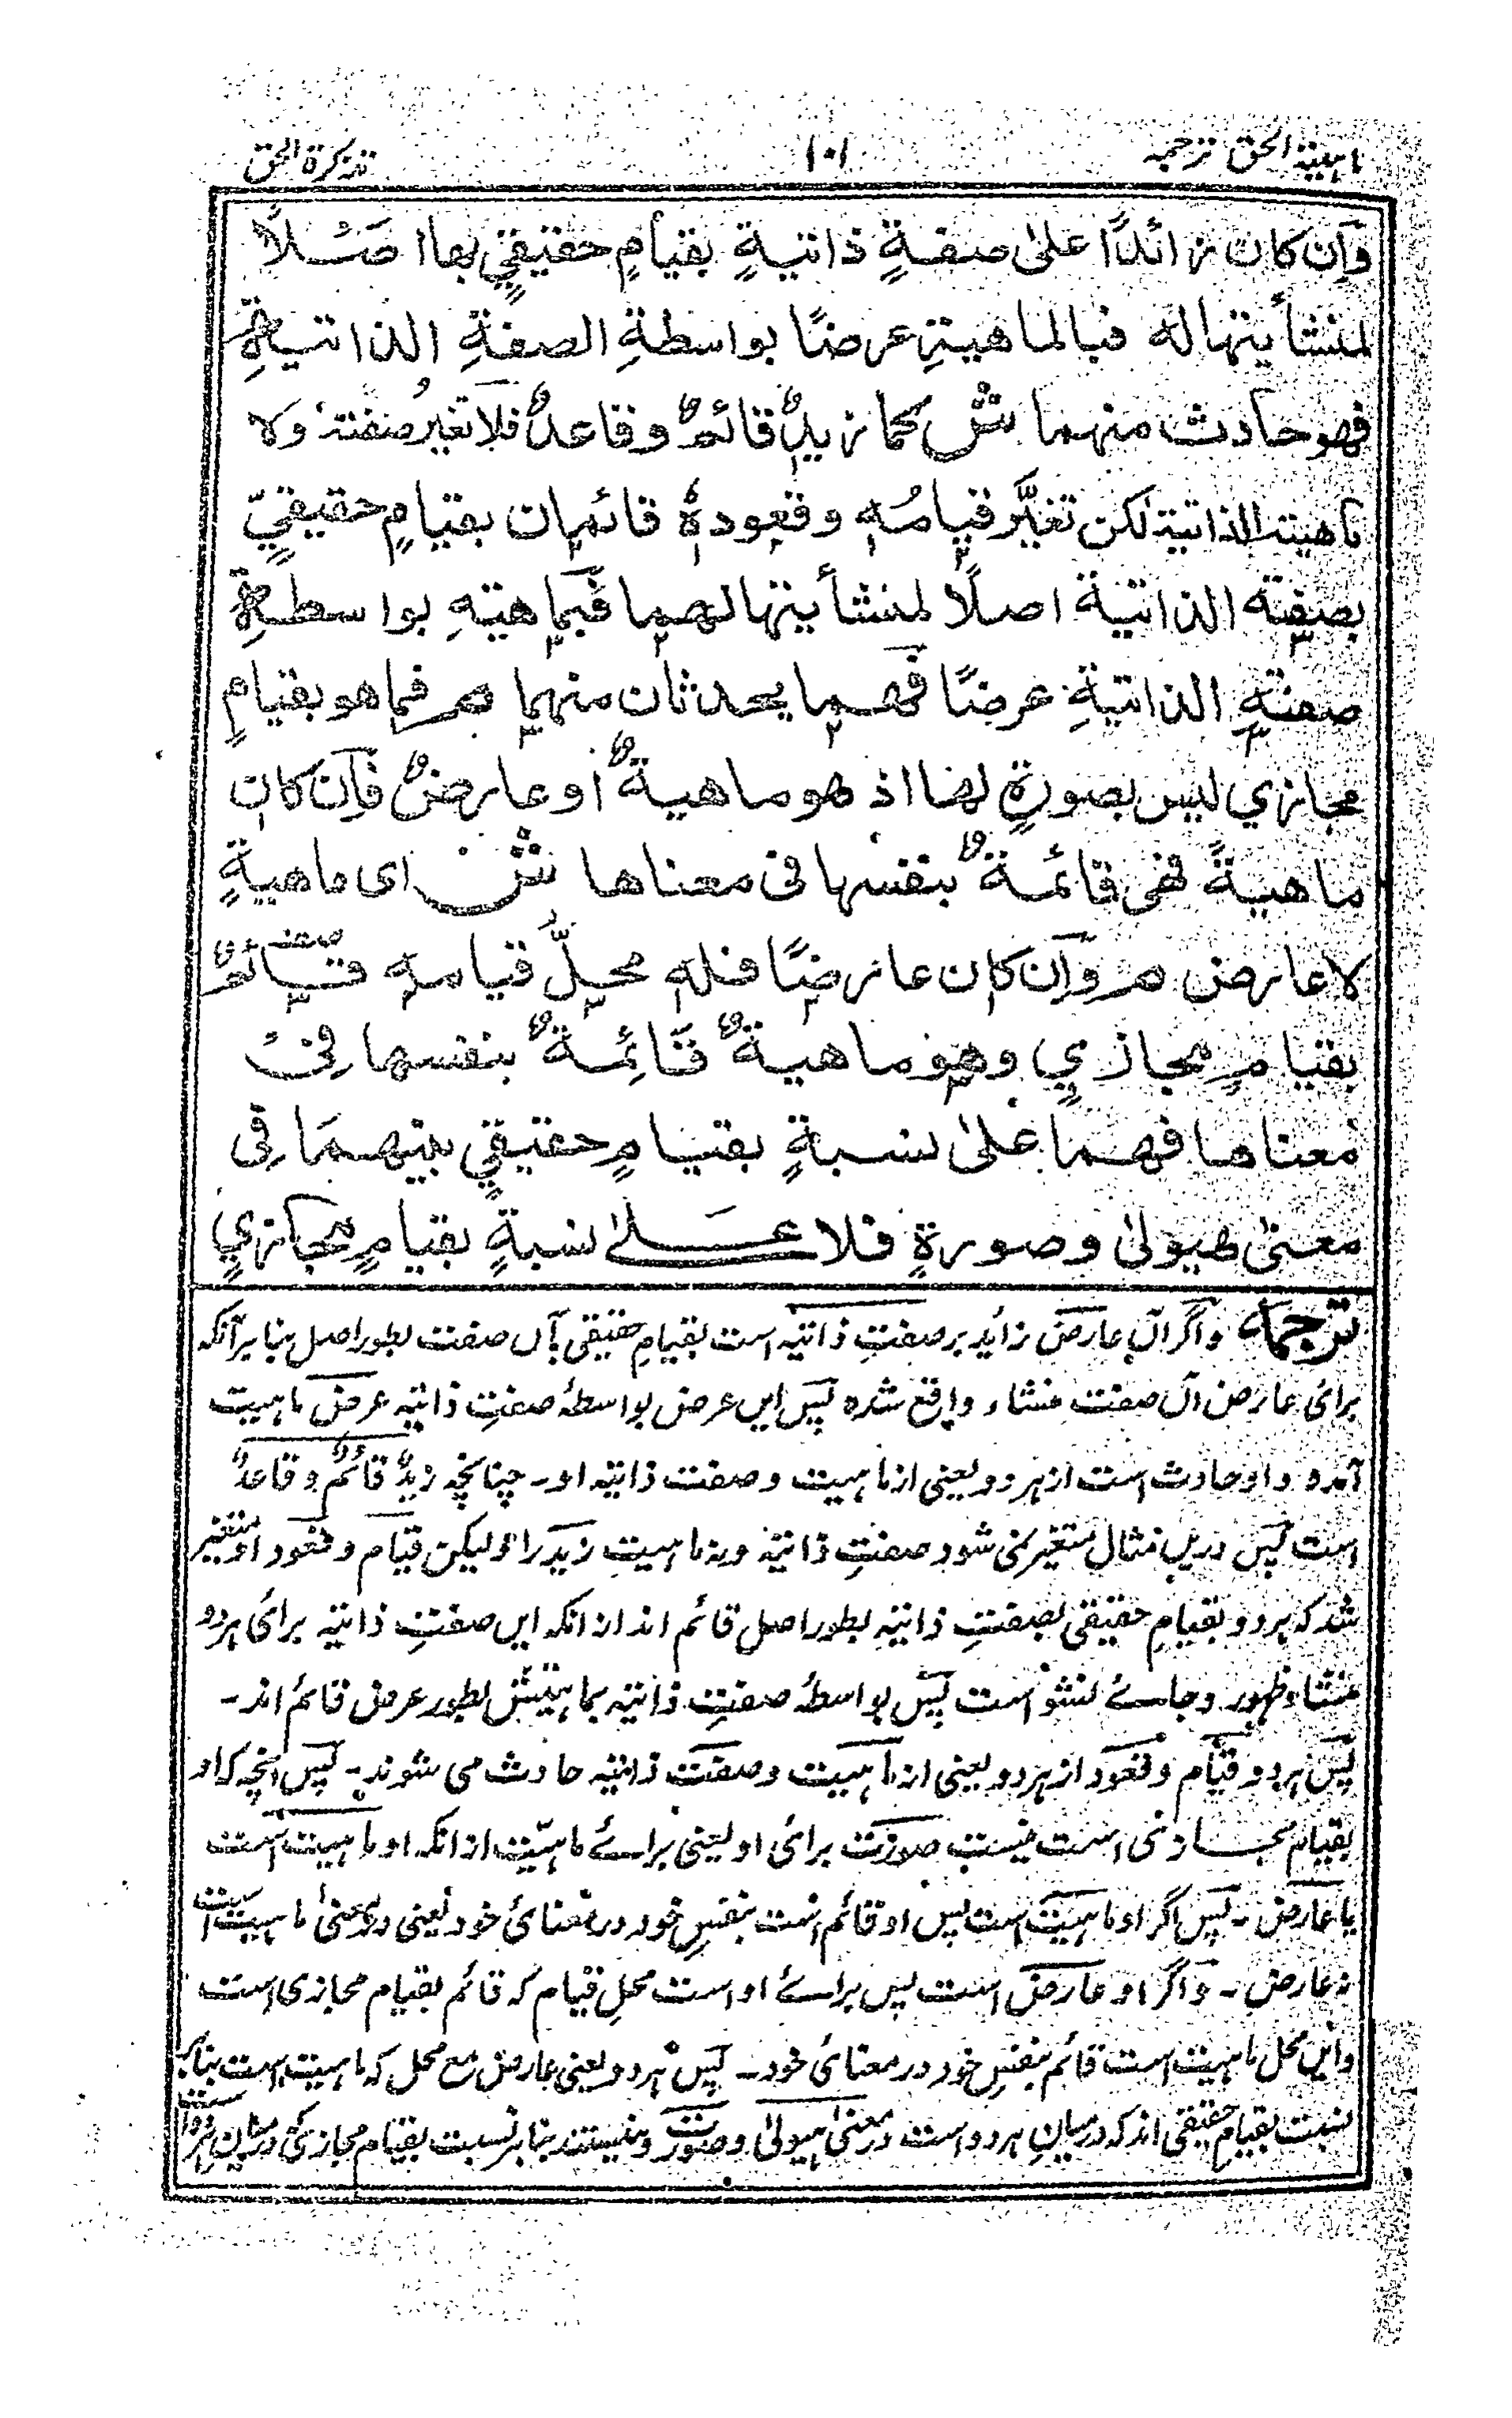 ماہیۃ الحق ترجمہ ۱۰۱ تذکرة الحق
وَاِن كان زائدًا علىٰ صفةٍ ذاتيةٍ بقيامٍ حقيقيٍ بها اصلًا
لمنشأيتها له فبالماهيةِ عرضًا بواسطةِ الصفةِ الذاتيةِ
فهو حادث منهما ش كما زيدٌ قائمٌ وقاعدٌ فلا تغير صفته ولا
ماهيته الذاتية لكن تغيَّر قيامُه وقعوده قائمان بقيامٍ حقيقيٍّ
بصفته الذاتية اصلًا لمنشأيتها لهما فبماهيتهِ بواسطةِ
صفتهِ الذاتيةِ عرضًا فهما يحدثان منهما م فما هو بقيامٍ
مجازي ليس بصورةٍ لها اذ هو ماهيةٌ او عارضٌ فاِن كان
ماهيةً فهى قائمةٌ بنفسها فى معناها ش اى ماهيةٍ
لا عارض م وَاِن كان عارضًا فله محلُّ قيامه قائم
بقيامٍ مجازيٍ وهو ماهيةٌ قَائِمةٌ بنفسها فِىْ
معناها فهما علىٰ نسبةٍ بقيامٍ حقيقيٍ بينهمَا فِى
معنىٰ هيولىٰ وصورةٍ فلا عَلىٰ نسبةٍ بقيامٍ مجازيٍ
ترجمہ واگر آں عارض زاید بر صفتِ ذاتیہ است بقیامِ حقیقی بآں صفت بطور اصل بنا بر آنکہ
برائ عارض آں صفت منشاء واقع شدہ پس ایں عرض بواسطۂ صفتِ ذاتیہ عرض ماہیت
آمدہ و او حادث است از ہر دو یعنی از ماہیت و صفت ذاتیہ او۔ چنانچہ زیدٌ قائمٌ و قاعدٌ
است پس دریں مثال متغیر نمی شود صفتِ ذاتیہ و نہ ماہیتِ زید را و لیکن قیام و قعود او متغیر
شد کہ ہر دو بقیامِ حقیقی بصفتِ ذاتیہ بطور اصل قائم اند ازانکہ ایں صفتِ ذاتیہ برائ ہر دو
منشاء ظہور و جاے نشو است پس بواسطۂ صفتِ ذاتیہ بماہیتش بطور عرض قائم اند۔
پس ہر دو قیام و قعود از ہر دو یعنی از ماہیت و صفت ذاتیہ حادث می شوند۔ پس انچہ کہ او
بقیام مجازی است نیست صورت برائ او یعنی براے ماہیّت ازانکہ او ماہیت است
یا عارض۔ پس اگر او ماہیت است پس او قائم است بنفس خود در معنائ خود یعنی در معنیٰ ماہیت است
نہ عارض۔ واگر او عارض است پس براے او است محلِ قیام کہ قائم بقیام مجازی است
و ایں محل ماہیت است قائم بنفسِ خود در معنائ خود۔ پس ہر دو یعنی عارض مع محل کہ ماہیت است بنا بر
نسبت بقیام حقیقی اند کہ درمیانِ ہر دو است در معنیٰ ہیولیٰ و صورت و نیستند بنا بر نسبت بقیام مجازی کہ درمیانِ ہر دو است